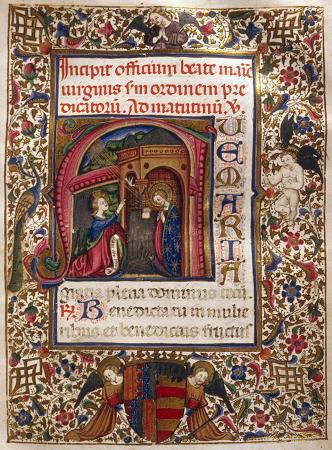 Incipit officium beate marie
uirginis scdm ordinem pre
dicatorū. Ad matutinū ℣
AUE MARIA
gracia plena dominus tecū.
℟ Benedicta tu in mulie
ribus et benedictus fructus